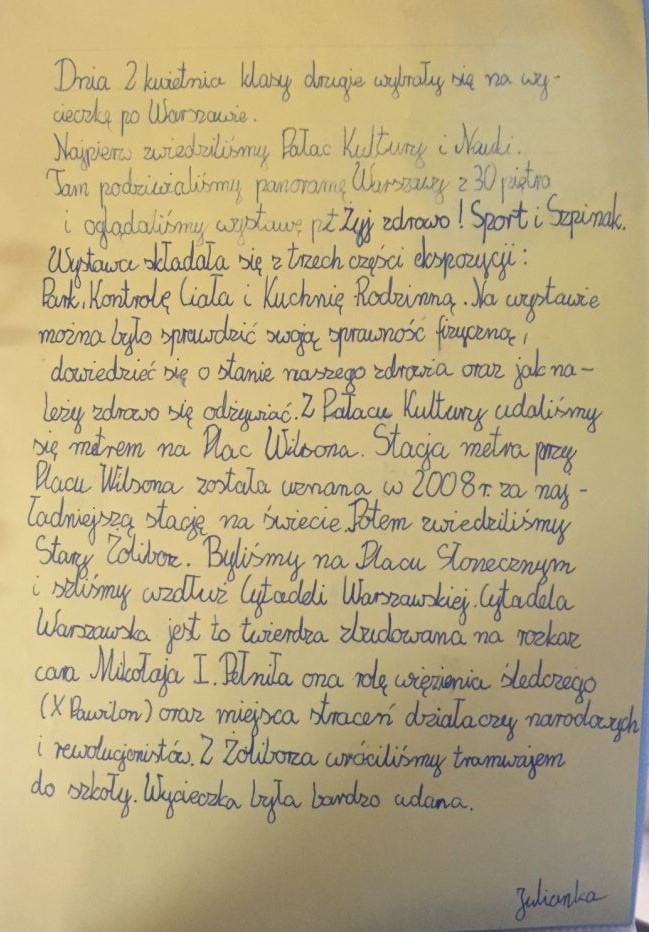 Dnia 2 kwietnia klasy drugie wybrały się na wy-
cieczkę po Warszawie.
Najpierw zwiedziliśmy Pałac Kultury i Nauki.
Tam podziwialiśmy panoramę Warszawy z 30 piętra
i oglądaliśmy wystawę pt Żyj zdrowo! Sport i Szpinak.
Wystawa składała się z trzech części ekspozycji:
Park, Kontrolę Ciała i Kuchnię Rodzinną. Na wystawie
można było sprawdzić swoją sprawność fizyczną,
dowiedzieć się o stanie naszego zdrowia oraz jak na-
leży zdrowo się odżywiać. Z Pałacu Kultury udaliśmy
się metrem na Plac Wilsona. Stacja metra przy
Placu Wilsona została uznana w 2008 r. za naj-
ładniejszą stację na świecie. Potem zwiedziliśmy
Stary Żoliborz. Byliśmy na Placu Słonecznym
i szliśmy wzdłuż Cytadeli Warszawskiej. Cytadela
Warszawska jest to twierdza zbudowana na rozkaz
cara Mikołaja I. Pełniła ona rolę więzienia śledczego
(X Pawilon) oraz miejsca straceń działaczy narodowych
i rewolucjonistów. Z Żoliborza wróciliśmy tramwajem
do szkoły. Wycieczka była bardzo udana.
Julianka